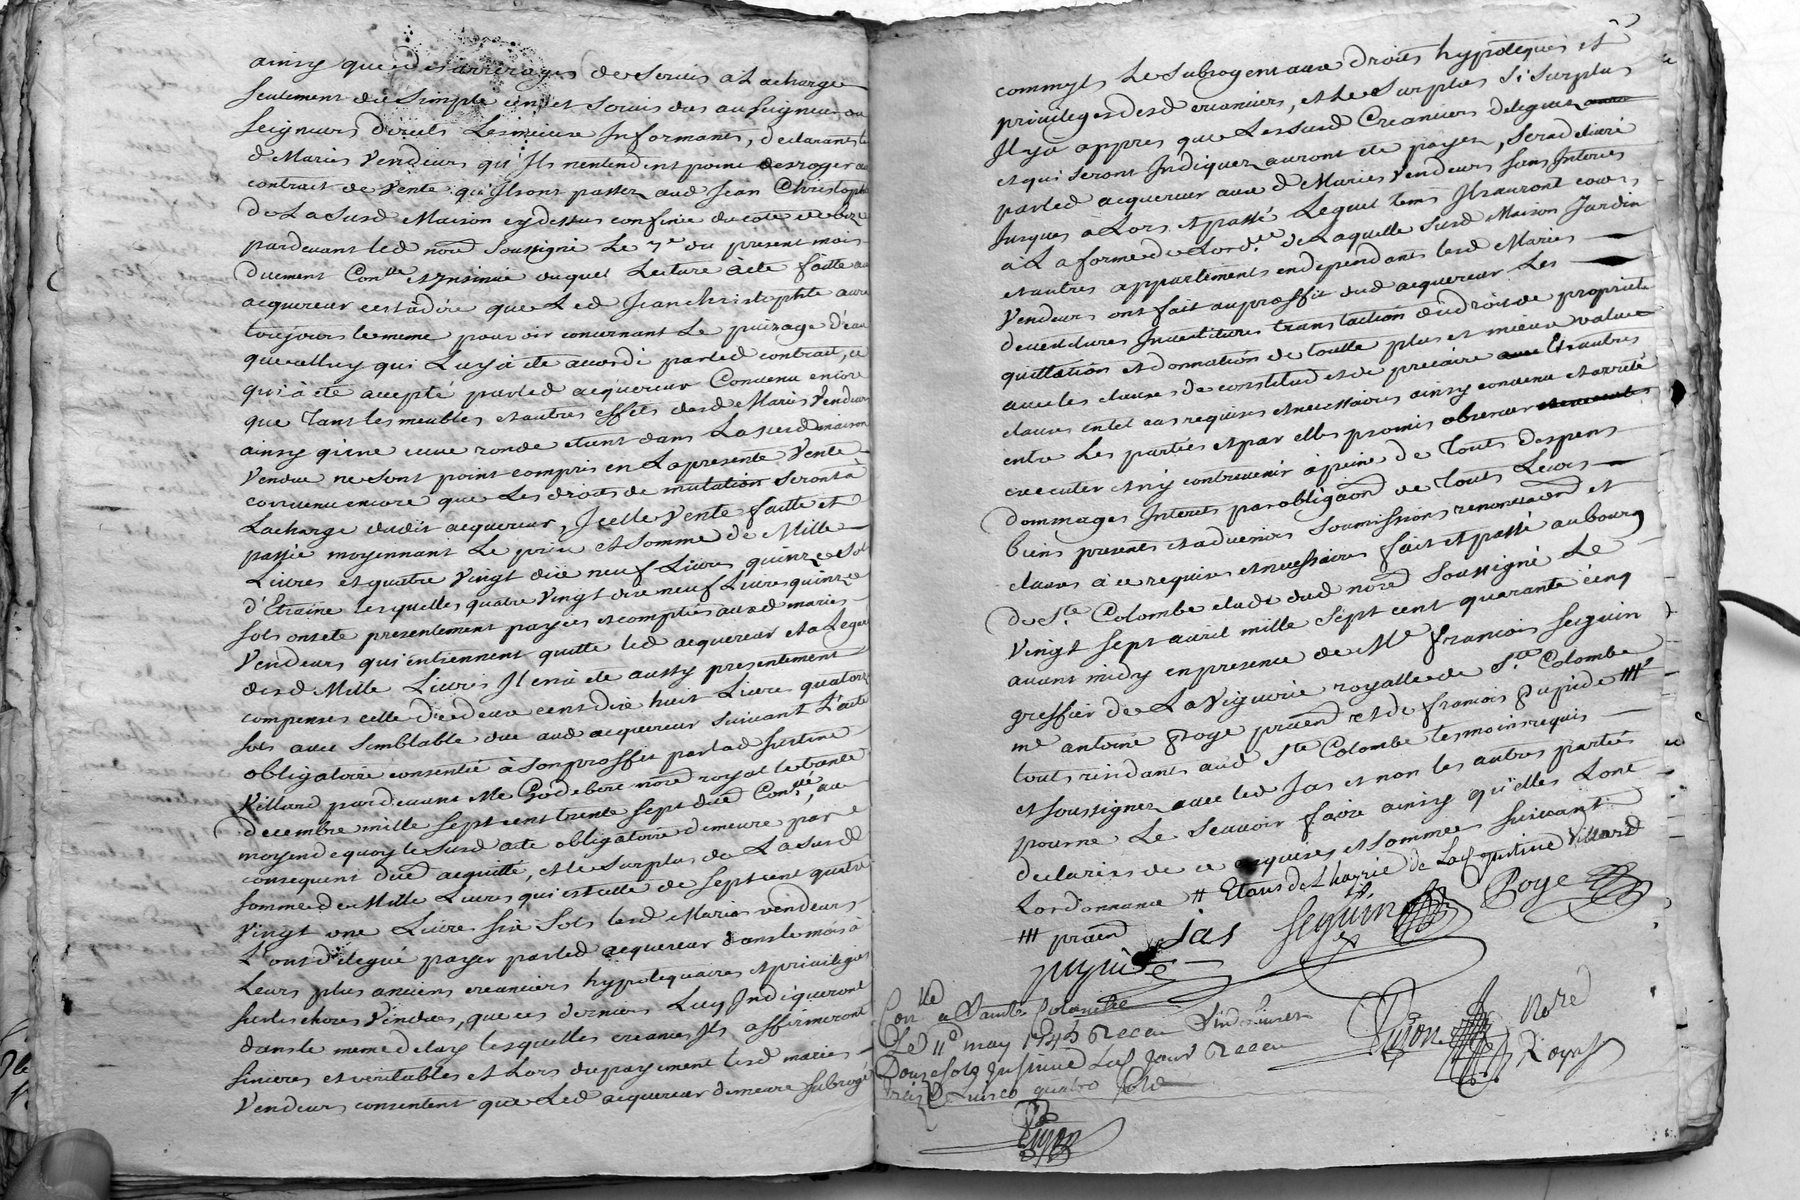 ainsy que des arrerages de servis a La charge
seulement du simple cens et servis dus au seigneur ou
seigneurs directs Lesmieux Informants, declarants les
d Maries Vendeurs qu'Ils n'entendent point desroger au
contrait de Vente qu'Ils ont passez aud Jean Christophle
de La susd Maison cy dessus confinée du coté de bize
pardevant led nore soussigné Le 7e du present mois
duement Conlle et Insinué duquel Lecture à ete faitte au
acquereur c'est à dire que Led Jean christophle aura
toujours le meme pouvoir concernant Le puizage d'eau
que celluy qui Luy à ete accordé par led contrait, ce
qui à ete accepté par led acquereur Convenu encore
que Tant les meubles et autres effets desd Maries Vendeurs
ainsy qu'une cuve ronde etant dans La susd maison
Vendue ne sont point compris en La presente Vente
convenu encore que Les droits de mutation seront à
La charge dudit acquereur, Icelle Vente faitte et
passée moyennant Le prix et somme de Mille
Livres et quatre Vingt dix neuf Livres quinze sols
d'Etraine lesquelles quatre Vingt dix neuf Livres quinze
sols ont ete presentement payées et comptées ausd maries
Vendeurs qui en tiennent quitte led acquereur et à L'egard
desd Mille Livres Il en à ete aussy presentement
compensés celle de deux cent dix huit Livres quatorze
sols avec semblable due aud acquereur suivant L'acte
obligatoire consentie à son proffit par lad Justine
Villard pardevant Me Godebere nore royal le trente
decembre mille sept cent trente sept dued Conllé, au
moyen de quoy le susd acte obligatoire demeure par
consequent dued acquitté, et le surplus de La susd
somme de Mille Livres qui est celle de sept cent quatre
vingt une Livre six sols lesd Maries vendeurs
L'ont delegué payer par led acquereur dans le mois à
Leurs plus anciens creanciers hypotequaires et privilegiés
sur les choses Vendues, que ces derniers Luy Indiqueront
dans le meme delay lesquelles creances Ils affirmeront
sinceres et veritables et Lors du payement lesd maries
Vendeurs consentent que Led acquereur demeure subrogé
comm'ils Le subrogent aux droits hypoteques et
privileges desd creanciers, et Le surplus si surplus
Il y à appres que Les susd Creanciers deleguez
et qui seront Indiquez auront ete payez, sera delivré
par led acquereur aux d Maries Vendeurs sans Interets
Jusques à Lors et passé Lequel tems Ils auront cours
à La forme de L'ordce de Laquelle susd Maison Jardin
et autres appartements en dependants lesd Maries
Vendeurs ont fait au proffit dud acquereur Les
devestitures Investitures translaction du droit de proprieté
quittation et donnation de toutte plus et mieux value
avec les clauses de constitud et de precaire Et autres
clauses en tel cas requises et necessaires ainsy convenu et arreté
entre Les parties et par elles promis observer
executer et n'y contrevenir à peine de Touts despens
dommages Interets par obligaōn de Touts Leurs
biens presents et advenirs soumissions renonciaōn et
clauses à ce requises et necessaires fait et passé au bourg
de Ste Colombe etude dud nore soussigné Le
Vingt sept avril mille sept cent quarante cinq
avant midy en presence de Me francois seguin
greffier de La Viguerie royalle de Ste Colombe
me antoine Roye praēn et de francois pupide ###
touts residants aud Ste Colombe tesmoins requis
et soussignez avec led Jas et non les autres parties
pour ne Le scavoir faire ainsy qu'elles L'ont
declarées de ce enquises et sommées suivant
Lordonnance # Etans de L'hoirie de Lad Justine Villard
### praēn Jas seguin Roye
pupide
Conlle a Sainte Colombe
Le 11e may 1745 Receu
Douze sols Insinué Led Jour Receu
quatre sols
Guyon
Guyon Nore
Royal